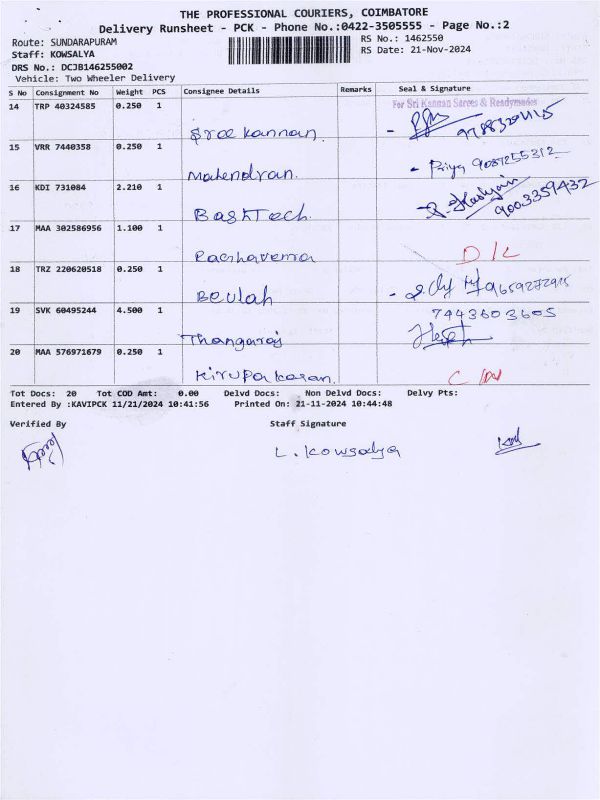 THE PROFESSIONAL COURIERS, COIMBATORE
Delivery Runsheet - PCK - Phone No.:0422-3505555 - Page No.:2
Route: SUNDARAPURAM
RS No.: 1462550
Staff: KOWSALYA
RS Date: 21-Nov-2024
DRS No.: DCJB146255002
Vehicle: Two Wheeler Delivery
S No Consignment No Weight PCS Consignee Details Remarks Seal & Signature
14 TRP 40324585 0.250 1
For Sri Kannan Sarees & Readymades
Sree Kannan
15 VRR 7440358 0.250 1
Mahendran.
- Priya 9087255312
16 KDI 731084 2.210 1
BashTech.
9003359432
17 MAA 302586956 1.100 1
D/L
18 TRZ 220620518 0.250 1
Beulah
19 SVK 60495244 4.500 1
7443603605
Thangaraj
20 MAA 576971679 0.250 1
Kirupakaran.
Tot Docs: 20 Tot COD Amt: 0.00 Delvd Docs: Non Delvd Docs: Delvy Pts:
Entered By :KAVIPCK 11/21/2024 10:41:56 Printed On: 21-11-2024 10:44:48
Verified By Staff Signature
L. Kowsalya